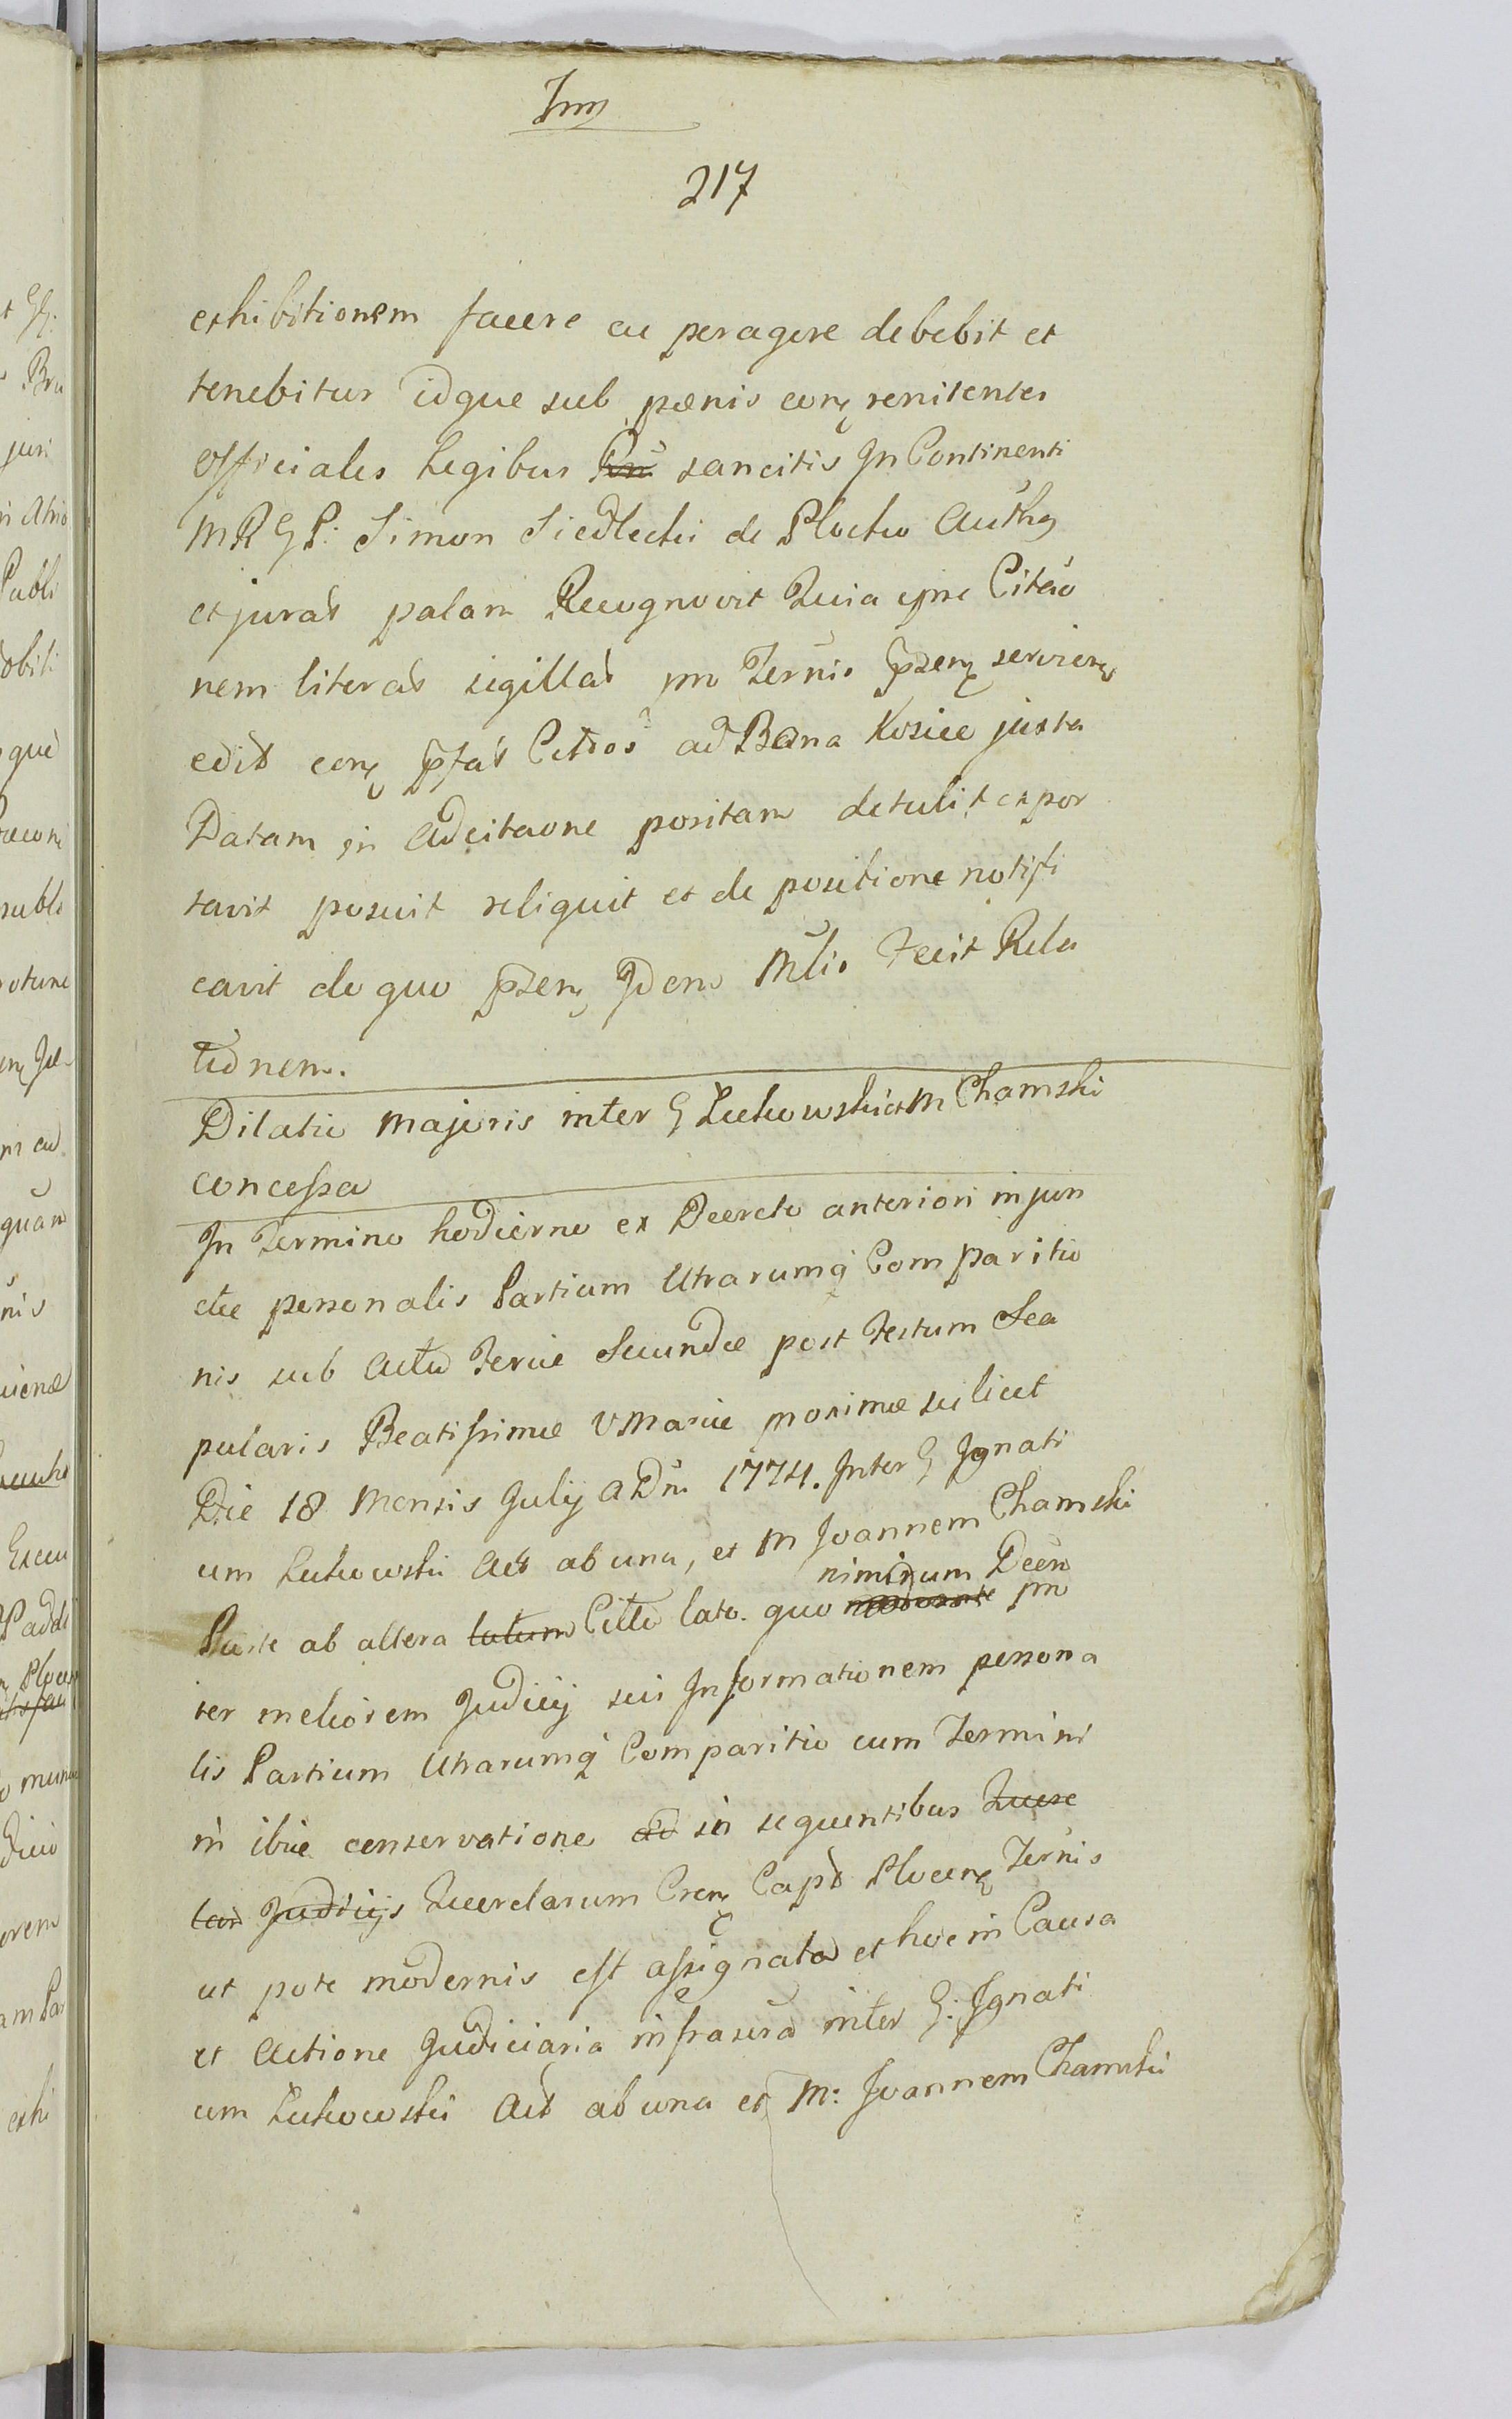 217
exhibitionem facere ac peragere debebit et
tenebitur idque sub pœnis con̄ renitentes
Officiales Legibus sancitis In Continenti
M R G P: Simon Siedlecki de Plocko Auth
et jurat̄ palam Recognovit Quia ipse Citāo
nem literat̄ sigillat̄ pro Ter̄nis p̄zen̄ servien̄
edit̄ con̄ p̄fat̄ Cittos ad Bona Kosice juxta
Datam in Adcitaone positam detulit et por
tavit posuit reliquit et de positione notifi
cavit de quo p̄zen̄ Idem M̄lis Fecit Rela
tionem.
Dilatio Majoris inter G Lukowski et M Chamski
concessa
In Termino hodierno ex Decreto anteriori injun
ctæ personalis Partium Utrarumq̄ Comparitio
nis sub Actu Feriæ Secundæ post Festum Sca
pularis Beatissimæ V Mariæ proximæ scilicet
Die 18 Mensis Julij A D̄ni 1774. Inter G Ignati
um Lukowski Act̄ ab una, et M Joannem Chamski
nimirum Decr̄o
Parte ab altera latum Citto lato. quo pro
ter meliorem Judicij sui Informationem persona
lis Partium Utrarumq̄ Comparitio cum Termini
in ibiē conservatione ad in sequentibus Quere
lar̄ Judicijs Querelarum Cren̄ Capt̄ Plocen̄ Ter̄nis
ut pote modernis est assignata et hoc in Causa
et Actione Judiciaria infrascr̄a inter G: Ignati
um Lukowski Act̄ ab una et M: Joannem Chamski